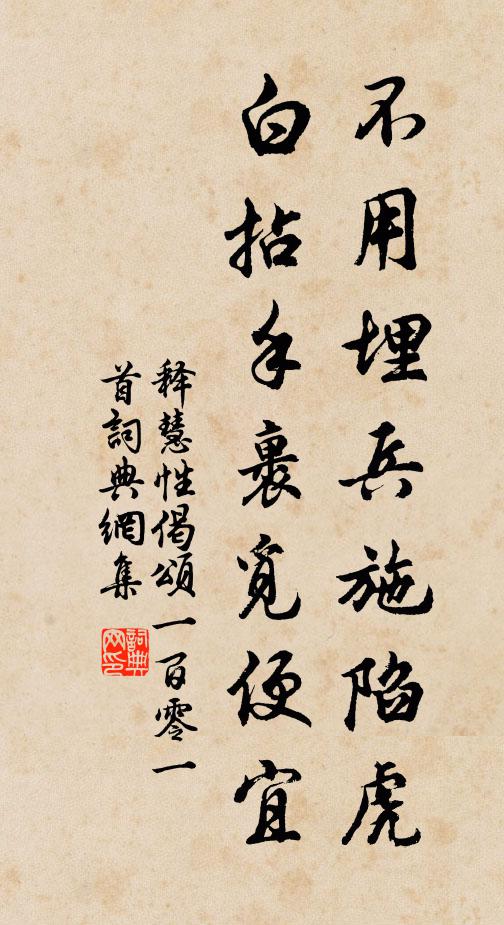 不用埋兵施陷虎
白拈手裏覓便宜
释慧性偈頌一百零一
首詞典網集
詞典网印